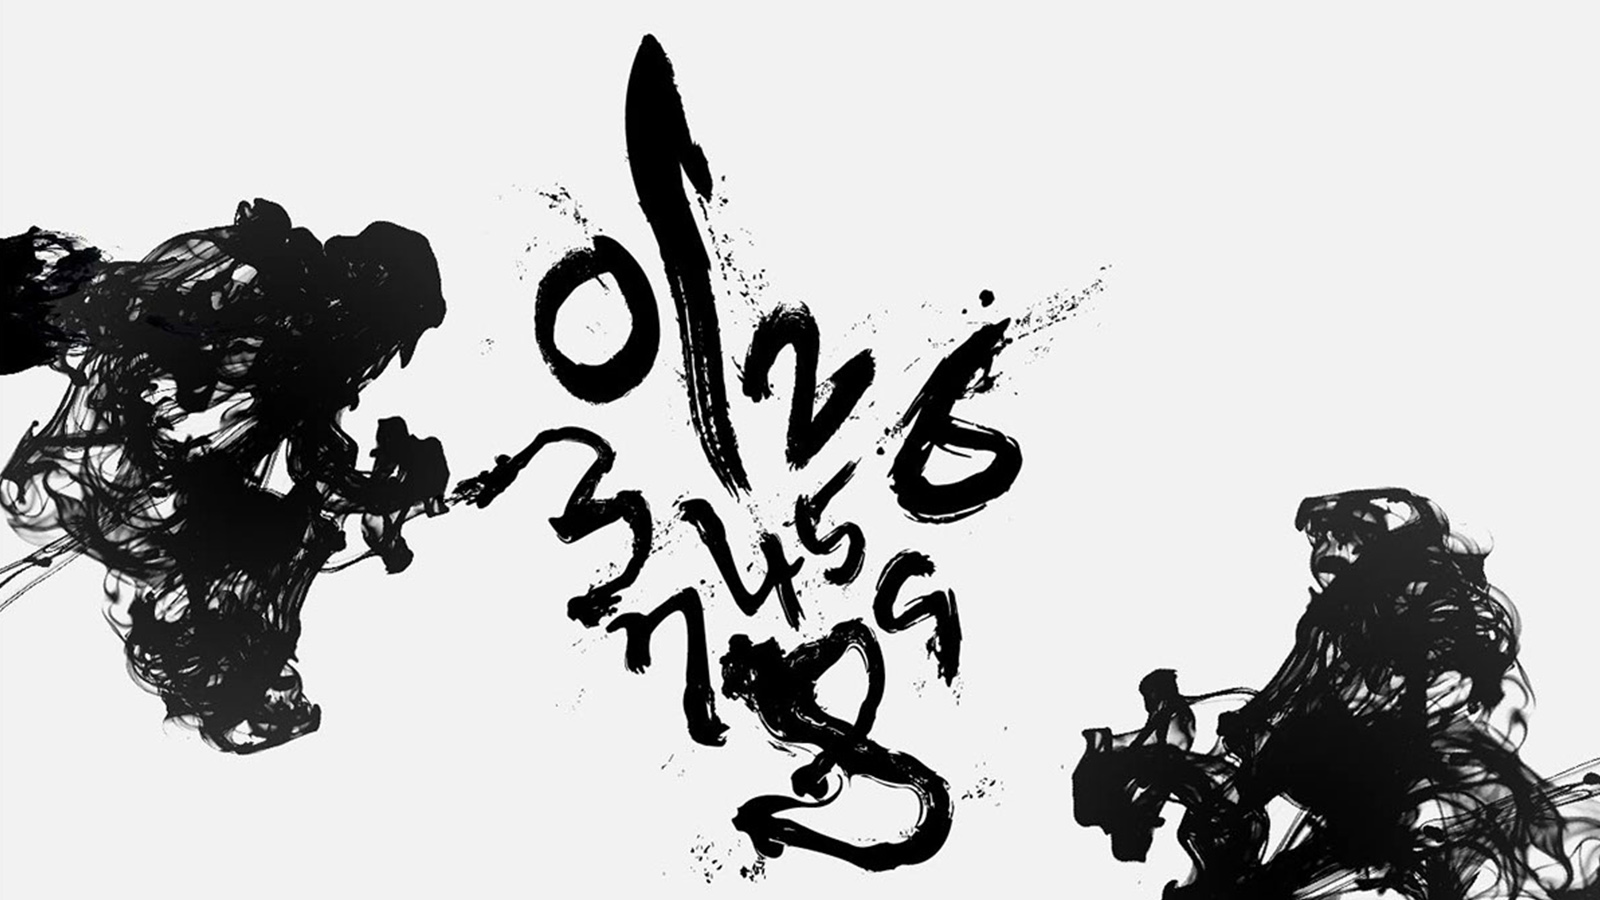 0126
345
789